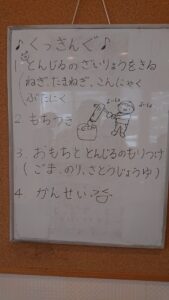 ♪くっきんぐ♪
1 とんじるのざいりょうをきる
(ねぎ、たまねぎ、こんにゃく
ぶたにく
2 もちつき
3. おもちととんじるのもりつけ
(ごま、のり、さとうじょうゆ)
4 かんせい